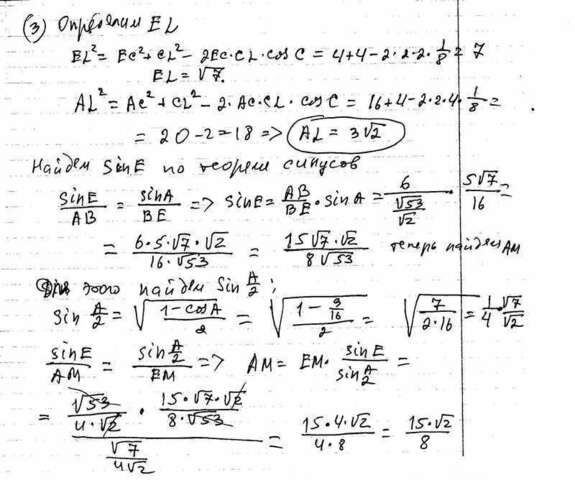 (3) Определим EL
EL² = EC² + CL² - 2EC·CL·cosC = 4+4-2·2·2·1/8 = 7
EL = √7.
AL² = AC² + CL² - 2·AC·CL·cosC = 16+4-2·2·4·1/8 =
= 20-2=18 => AL = 3√2
Найдем sinE по теореме синусов
sinE/AB = sinA/BE => sinE = AB/BE · sinA = 6/(√53/√2) · 5√7/16 =
= 6·5·√7·√2/16·√53 = 15√7·√2/8√53 теперь найдем AM
Для этого найдем sin A/2;
sin A/2 = √((1-cosA)/2) = √((1-9/16)/2) = √(7/(2·16)) = 1/4 · √7/√2
sinE/AM = sin A/2 / EM => AM = EM · sinE/sin A/2 =
= (√53/(4·√2) · 15·√7·√2/(8·√53)) / (√7/(4√2)) = 15·4·√2/(4·8) = 15·√2/8